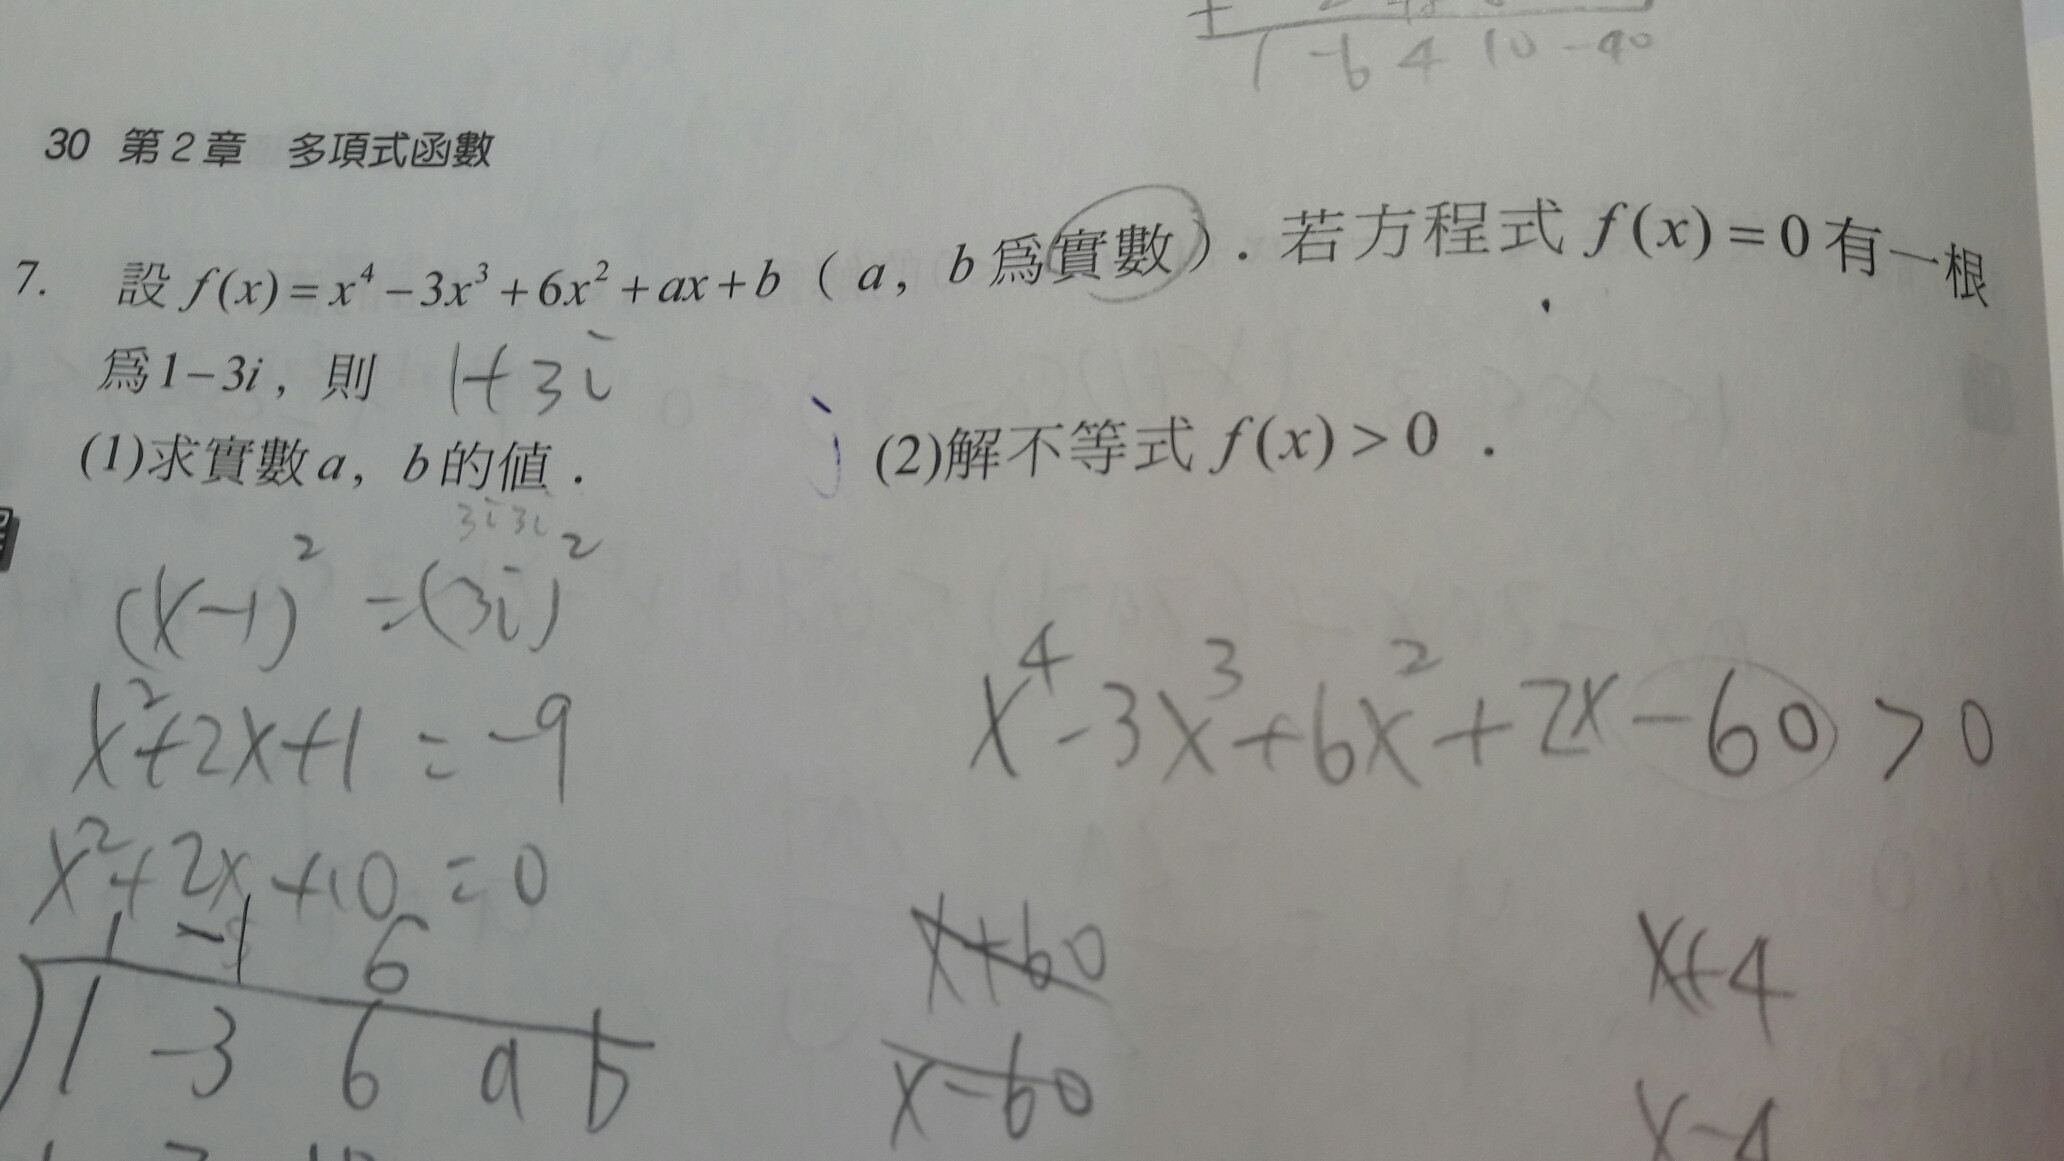 1 -6 4 10 -40
30 第2章 多項式函數
7. 設 f(x)=x⁴-3x³+6x²+ax+b ( a, b為實數 ). 若方程式 f(x)=0有一根
為1-3i, 則 1+3i
(1)求實數a, b的值. (2)解不等式 f(x)>0 .
3i 3i
(x-1)² =(3i)²
x²+2x+1 = -9
x⁴-3x³+6x²+2x-60>0
x²+2x+10=0
1 -1 6
1 -3 6 a b
x+60
x-60
x+4
x-4